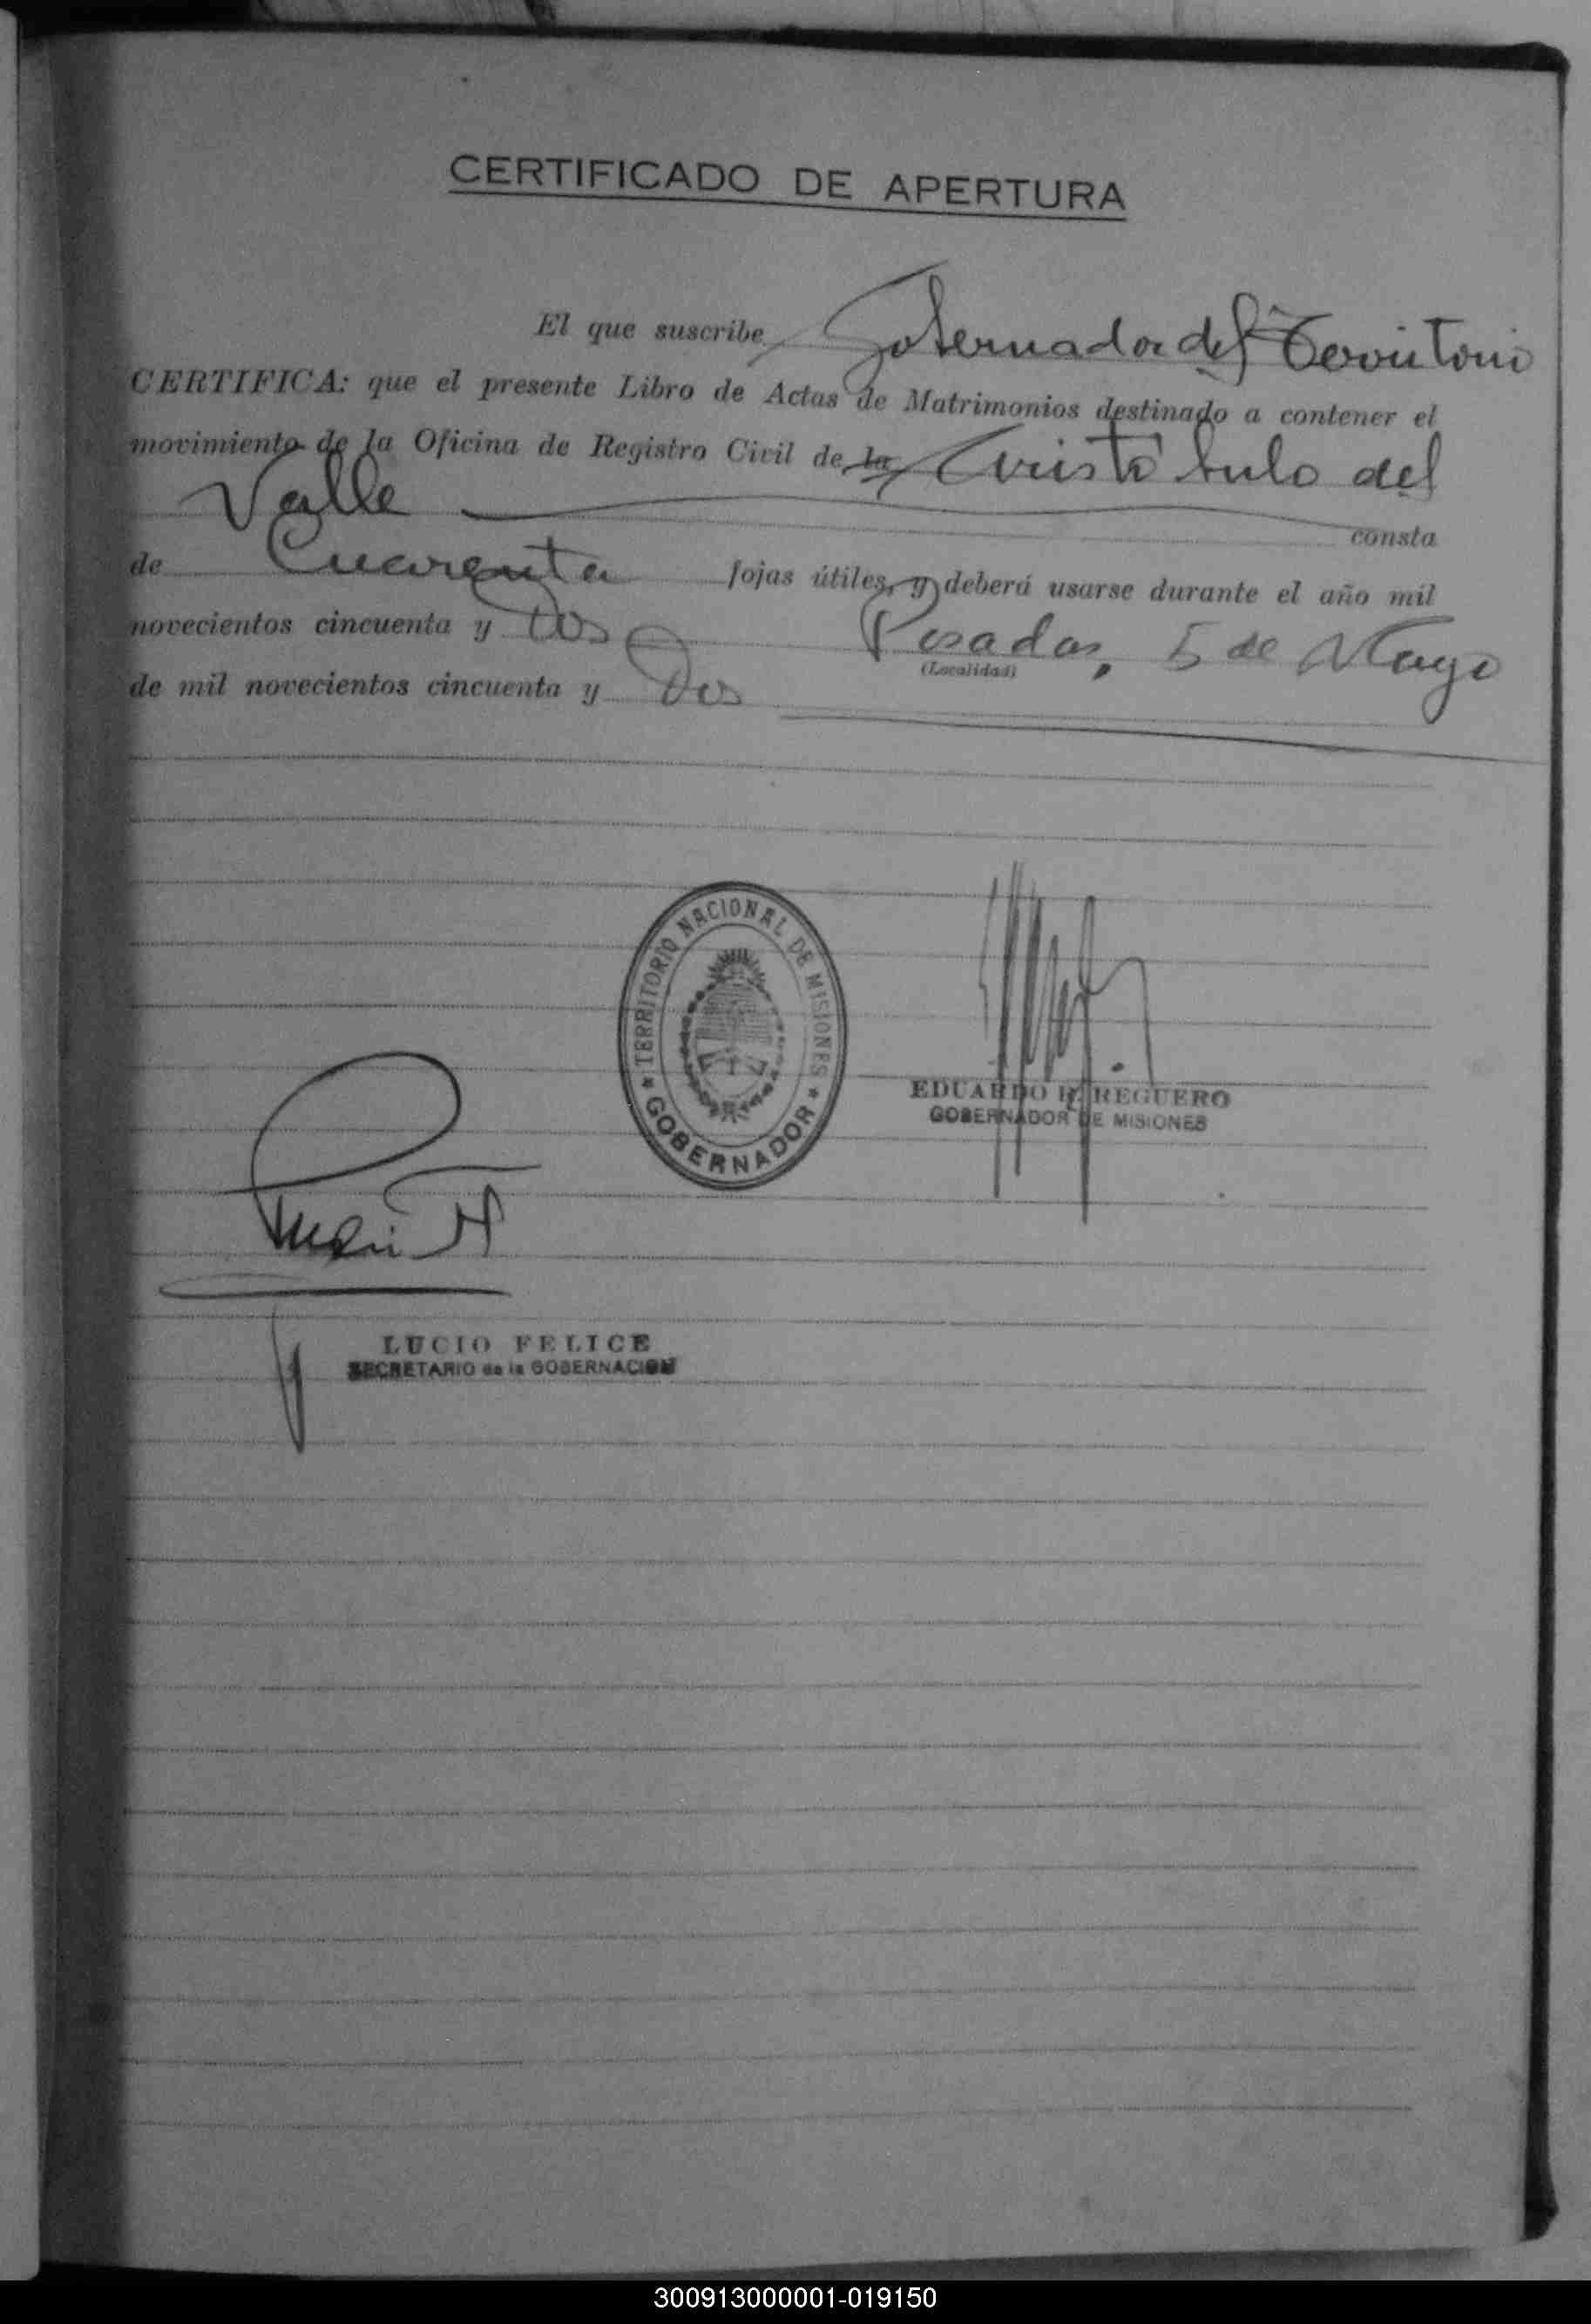 CERTIFICADO DE APERTURA
El que suscribe Gobernador del Territorio
CERTIFICA: que el presente Libro de Actas de Matrimonios destinado a contener el
movimiento de la Oficina de Registro Civil de la Aristóbulo del
Valle consta
de Cuarenta fojas útiles, y deberá usarse durante el año mil
novecientos cincuenta y Dos Posadas, 5 de Mayo
(Localidad)
de mil novecientos cincuenta y Dos
TERRITORIO NACIONAL DE MISIONES
GOBERNADOR
EDUARDO REGUERO
GOBERNADOR DE MISIONES
LUCIO FELICE
SECRETARIO de la GOBERNACION
300913000001-019150